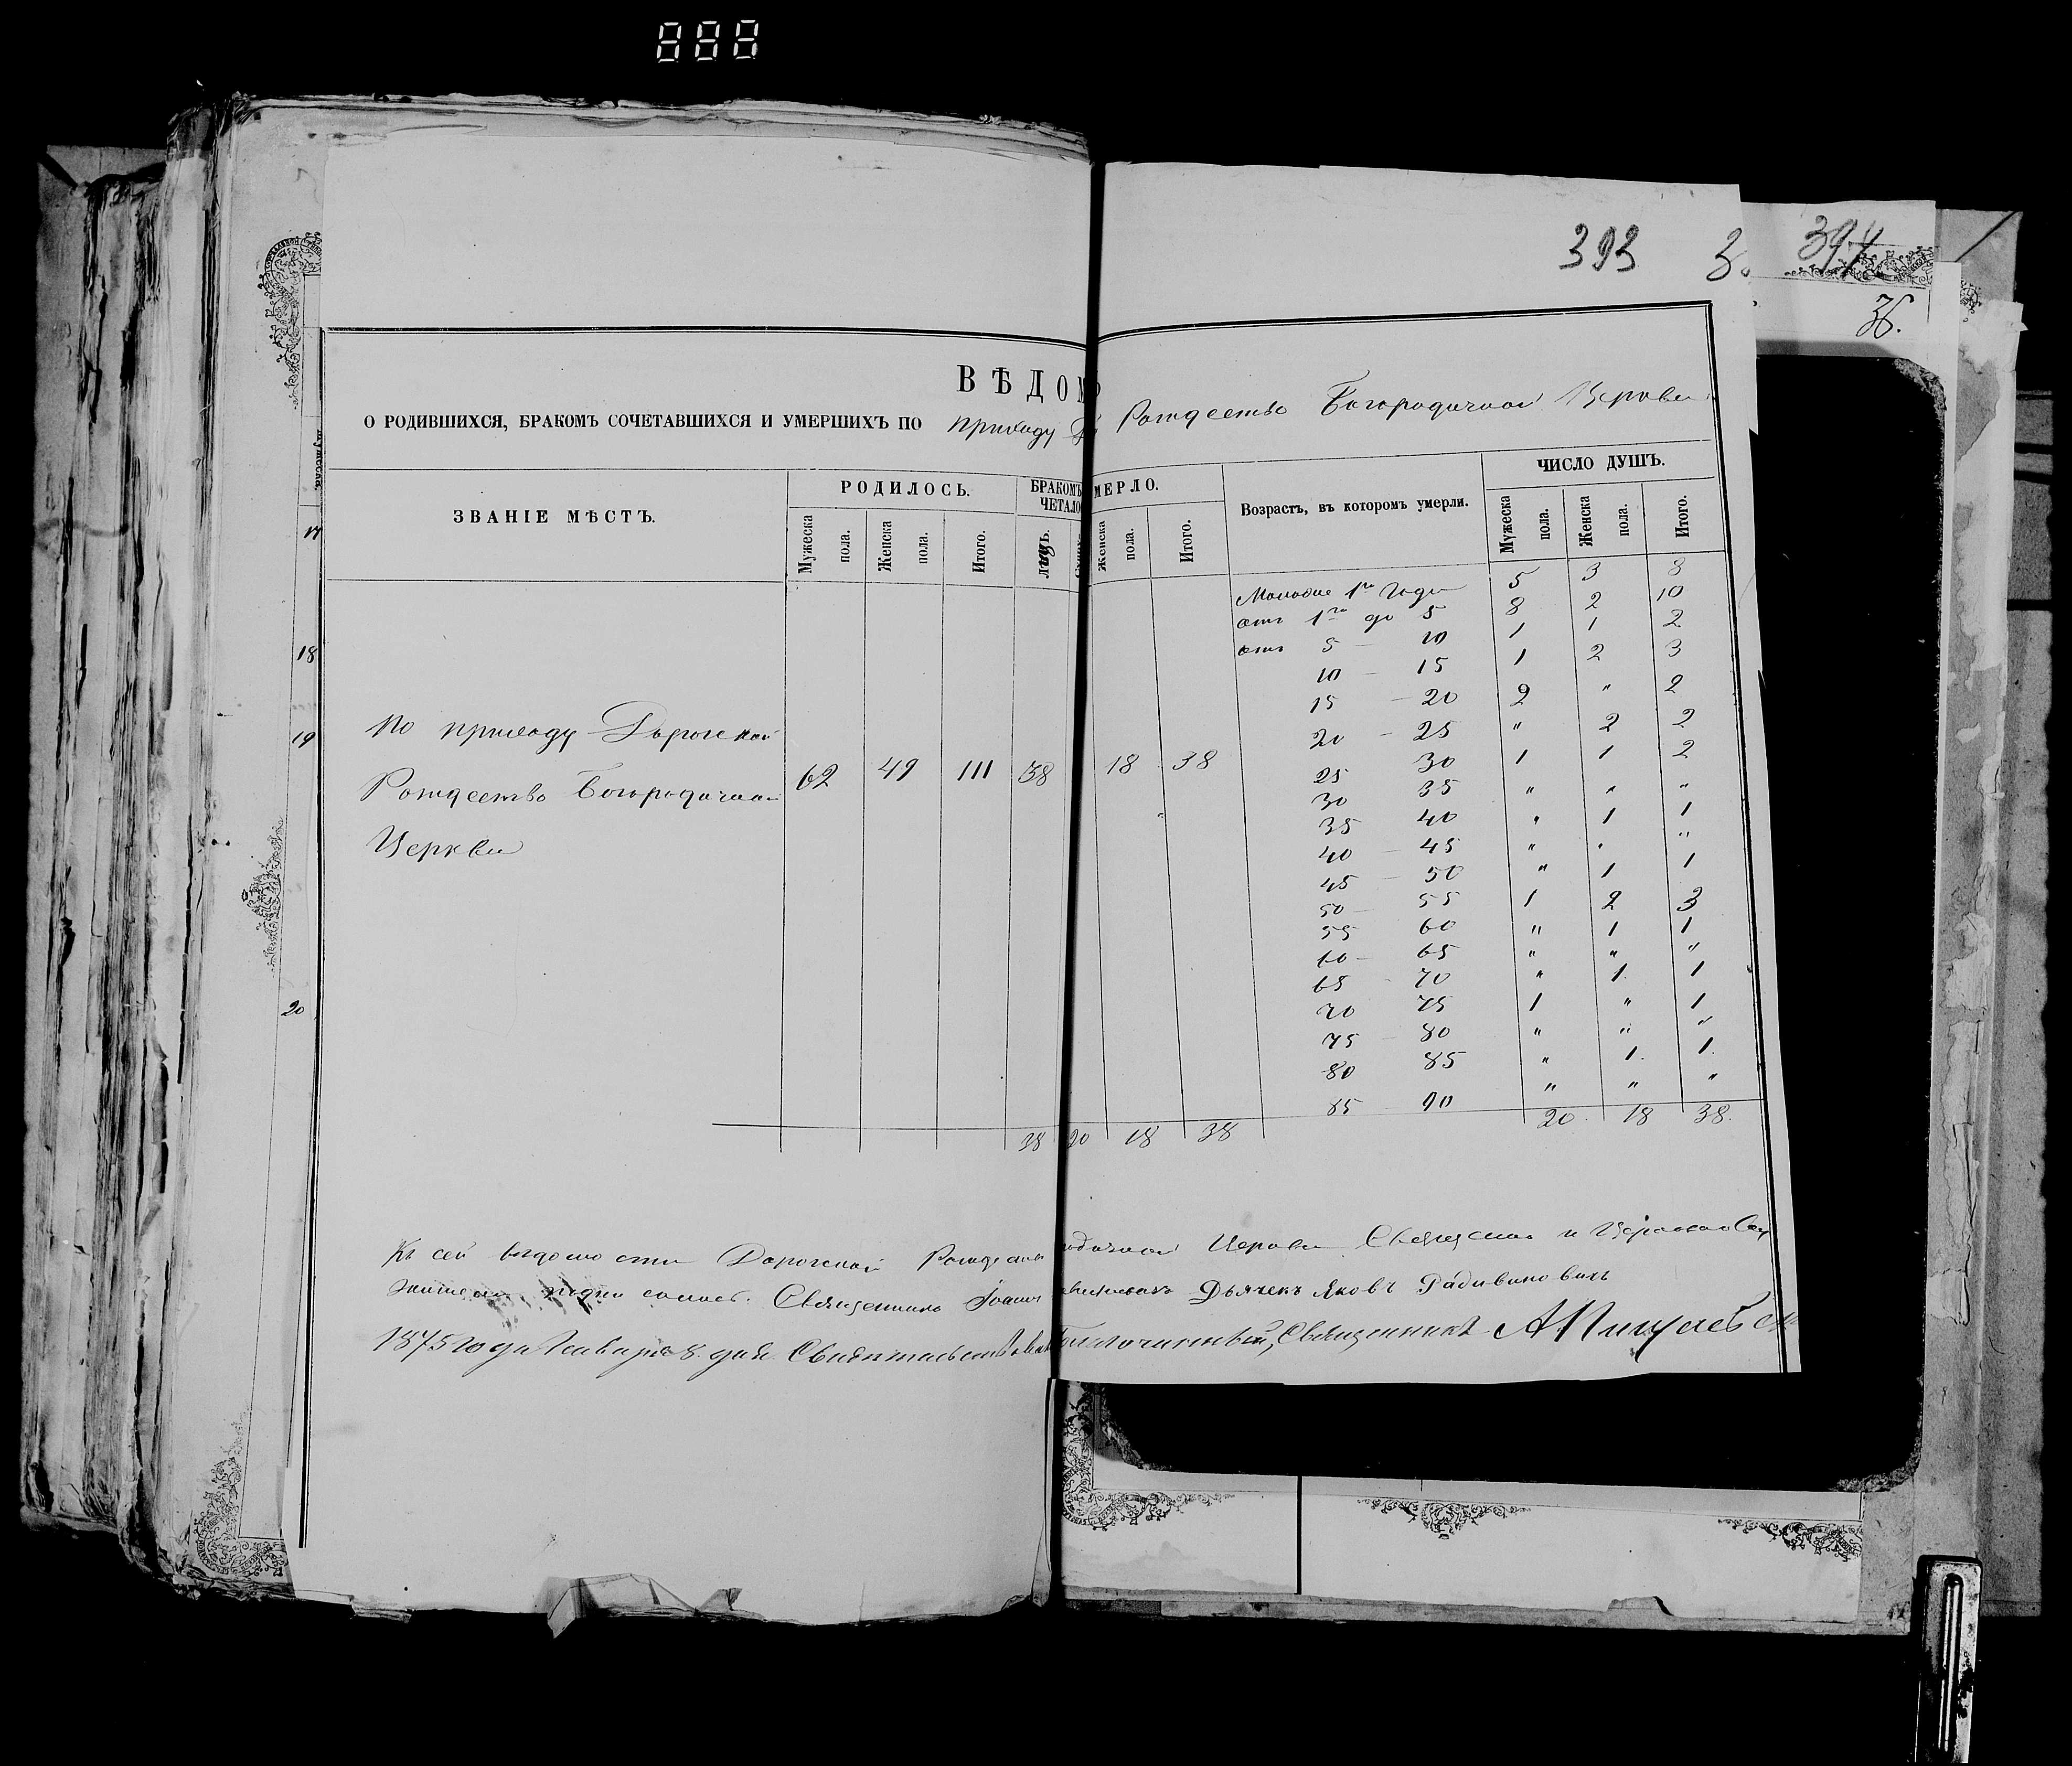 888
393
394
36.
ВѢДОМ
О РОДИВШИХСЯ, БРАКОМЪ СОЧЕТАВШИХСЯ И УМЕРШИХЪ ПО приходу Рождество Богородичной Церкви
ЗВАНІЕ МѢСТЪ.
РОДИЛОСЬ.
БРАКОМЪ
ЧЕТАЛО
МЕРЛО.
Возрастъ, въ которомъ умерли.
ЧИСЛО ДУШЪ.
Мужеска пола.
Женска пола.
Итого.
Лицъ.
Женска пола.
Итого.
Мужеска пола.
Женска пола.
Итого.
17
18
19
20
По приходу Дорогской
Рождество Богородичной
Церкви
62 49 111 38 18 38
Молодше 1го года 5 3 8
отъ 1го до 5 8 2 10
отъ 5 — 10 1 1 2
10 — 15 1 2 3
15 — 20 2 " 2
20 — 25 " 2 2
25 30 1 1 2
30 35 " " "
35 40 " 1 1
40 — 45 " " "
45 — 50 " 1 1
50 — 55 1 2 3
55 60 " 1 1
60 — 65 " " "
65 - 70 " 1. 1
70 75 1 " 1
75 - 80 " " "
80 85 " 1. 1.
85 90 " " "
38 20 18 38 20 18 38.
Къ сей вѣдомости Дорогской Рождество одичной Церкви Священно и Церковно
Священникъ Іоаннъ Дьячекъ Яковъ Радивиновичъ
1875 года Января 8. дня. Благочинный, Священникъ А